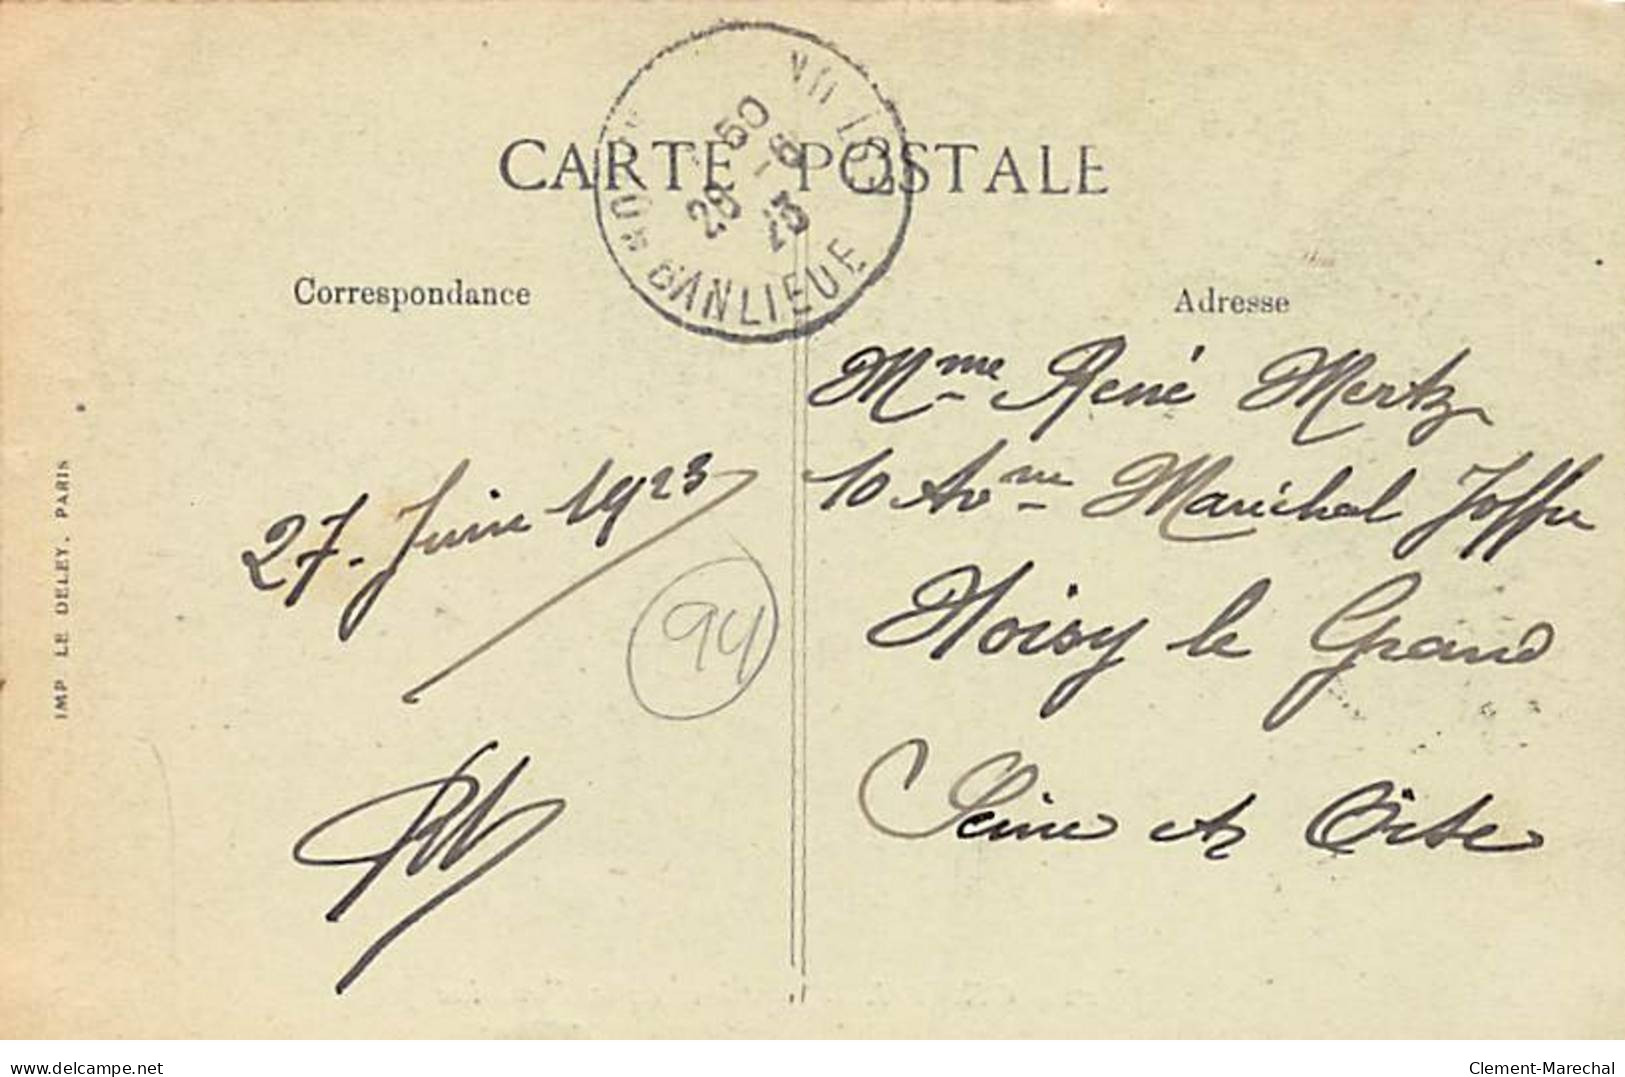 CARTE POSTALE
BANLIEUE
50
28 - 6
23
Correspondance
Adresse
27. Juin 1923
94
Mme René Mertz
10 Avue Maréchal Joffre
Noisy le Grand
Seine et Oise
IMP LE DELEY, PARIS
delcampe.net
Clement-Marechal